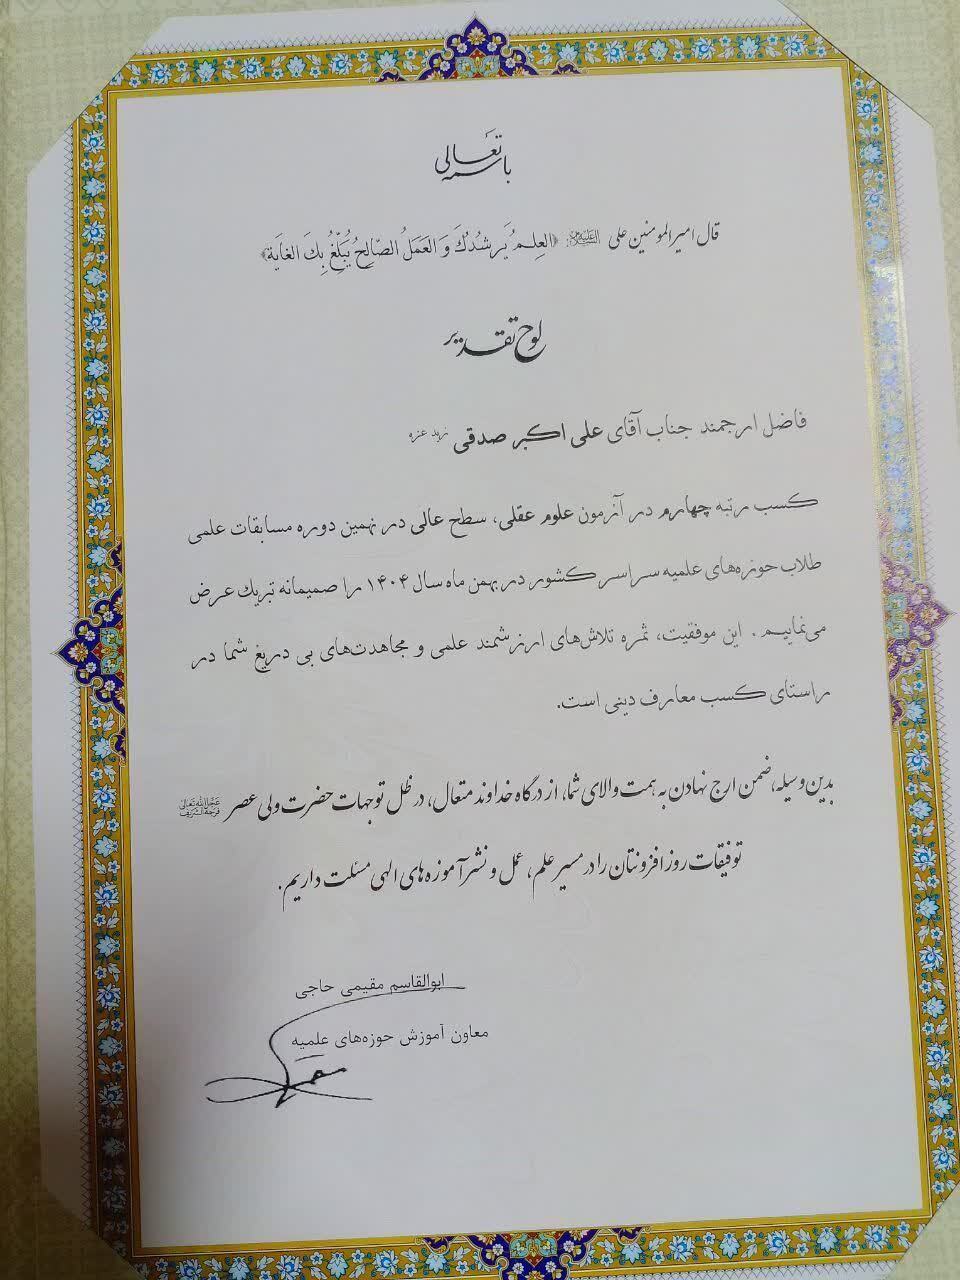 باسمه تعالی
قال امیرالمومنین علی علیه‌السلام: «العِلمُ یُرشِدُكَ وَ العَمَلُ الصّالِحُ یُبَلِّغُ بِكَ الغایَة»
لوح تقدیر
فاضل ارجمند جناب آقای علی اکبر صدقی زید عزه
کسب رتبه چهارم در آزمون علوم عقلی، سطح عالی در نهمین دوره مسابقات علمی
طلاب حوزه‌های علمیه سراسر کشور در بهمن ماه سال ۱۴۰۴ را صمیمانه تبریک عرض
می‌نماییم. این موفقیت، ثمره تلاش‌های ارزشمند علمی و مجاهدت‌های بی دریغ شما در
راستای کسب معارف دینی است.
بدین وسیله، ضمن ارج نهادن به همت والای شما، از درگاه خداوند متعال، در ظل توجهات حضرت ولی عصر عجل الله تعالی فرجه الشریف
توفیقات روز افزونتان را در مسیر علم، عمل و نشر آموزه های الهی مسئلت داریم.
ابوالقاسم مقیمی حاجی
معاون آموزش حوزه‌های علمیه